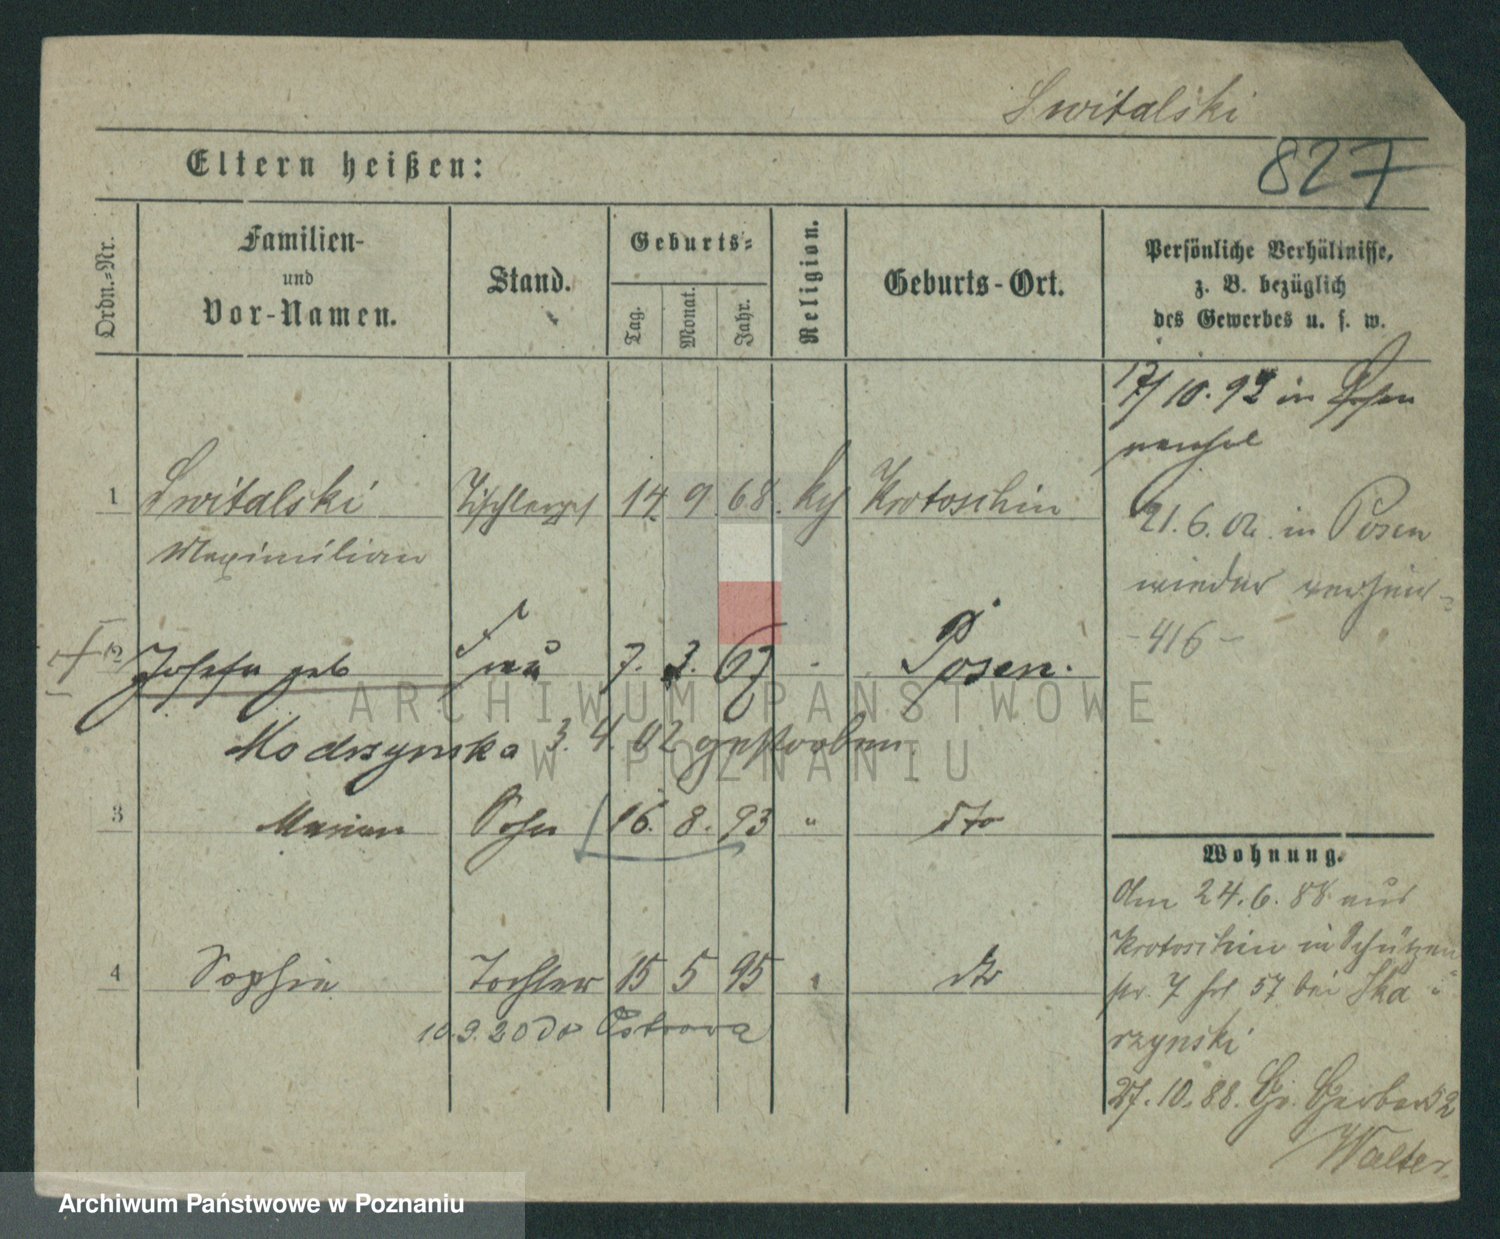 Switalski
827
Eltern heißen:
Ordn.-Nr.
Familien-
und
Vor-Namen.
Stand.
Geburts-
Tag.
Monat.
Jahr.
Religion.
Geburts-Ort.
Persönliche Verhältnisse,
z. B. bezüglich
des Gewerbes u. s. w.
17/10.92 in Posen
1 Switalski Tischlerges 14 9 68. kth Krotoschin
Maximilian
21.6.02 in Posen
wieder verheir-
-416-
2 Josefa geb Frau 7. 3. 67 - Posen.
Modrzynska 3. 4. 02 gestorben
3 Marian Sohn 16. 8. 93 " dto
4 Sophie Tochter 15 5 95 " dto
10.9.20 do Ostrowa
Wohnung.
Am 24.6.88 aus
Krotoschin in Schützen
str. 7 bei Ska-
rzynski
27.10.88. Gr. Gerberst 2
Walter.
ARCHIWUM PAŃSTWOWE
W POZNANIU
Archiwum Państwowe w Poznaniu